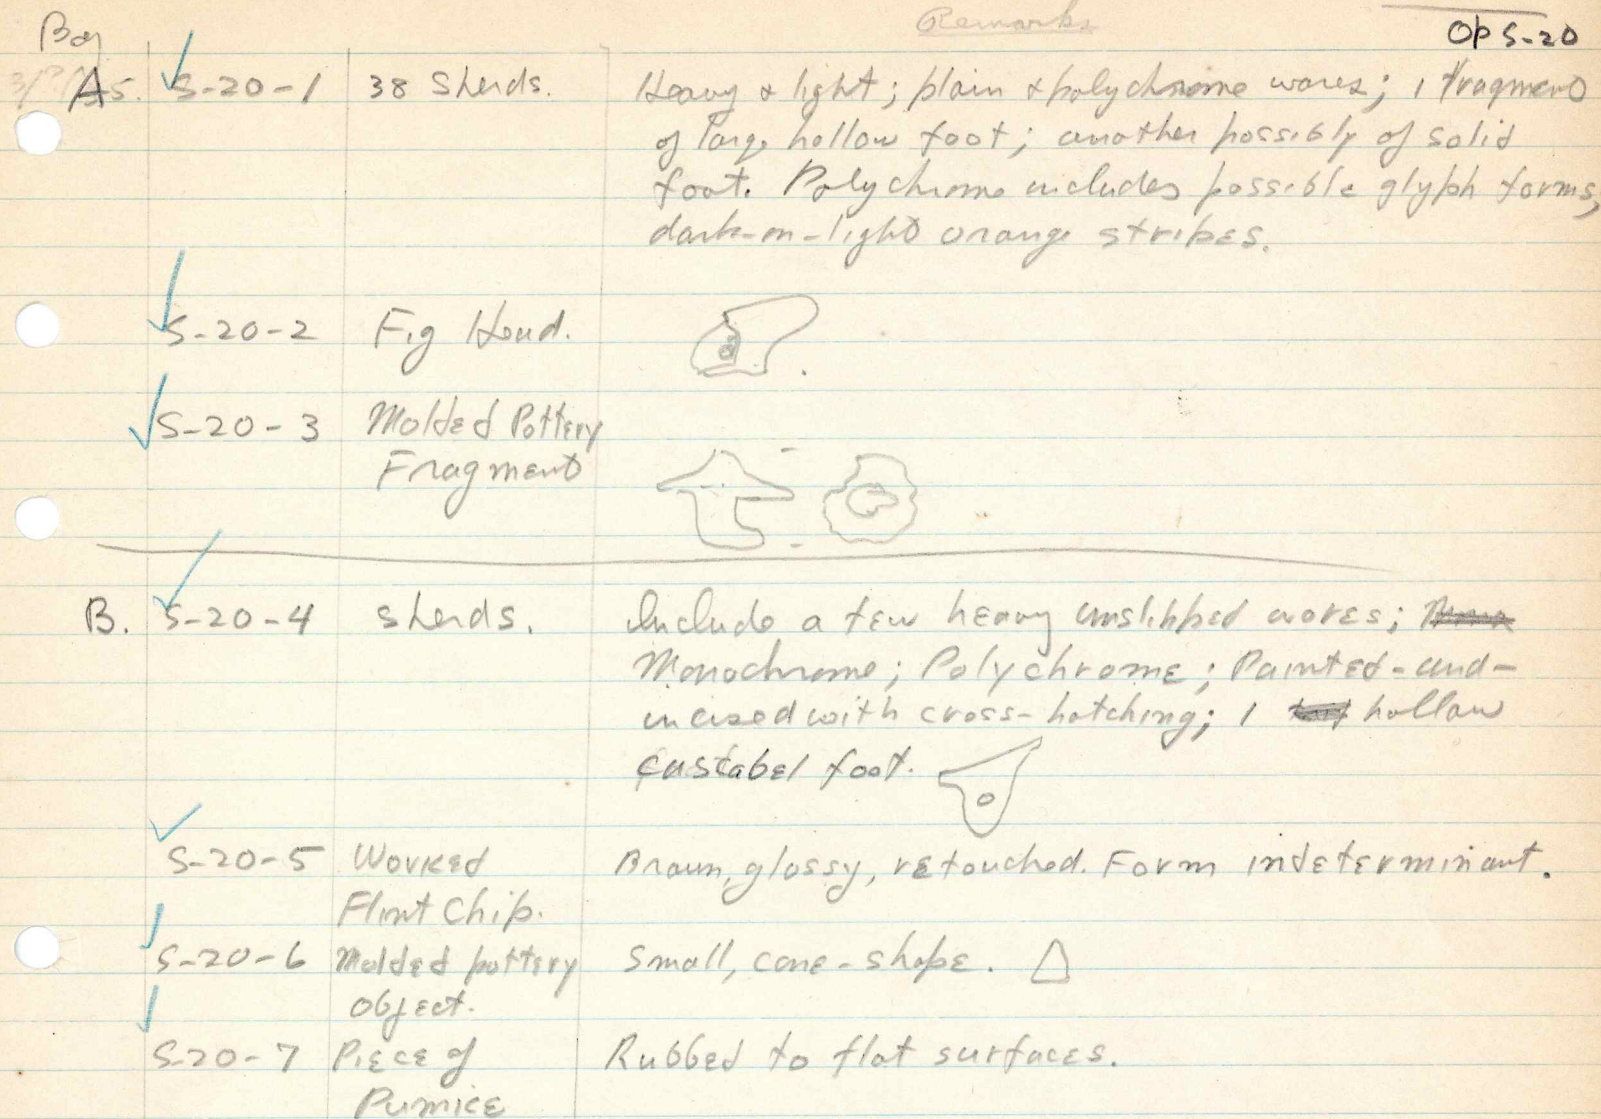 Remarks
Op S-20
Bag
A S-20-1 38 Sherds. Heavy & light; plain & polychrome wares; 1 fragment
of large hollow foot; another possibly of solid
foot. Polychrome includes possible glyph forms,
dark-on-light orange stripes.
S-20-2 Fig Head.
S-20-3 Molded Pottery
Fragment
B. S-20-4 Sherds. Include a few heavy unslipped wares;
Monochrome; Polychrome; Painted-and-
incised with cross-hatching; 1 hollow
foot.
S-20-5 Worked Brown, glossy, retouched. Form indeterminant.
Flint Chip.
S-20-6 Molded pottery Small, cone-shape.
object.
S-20-7 Piece of Rubbed to flat surfaces.
Pumice